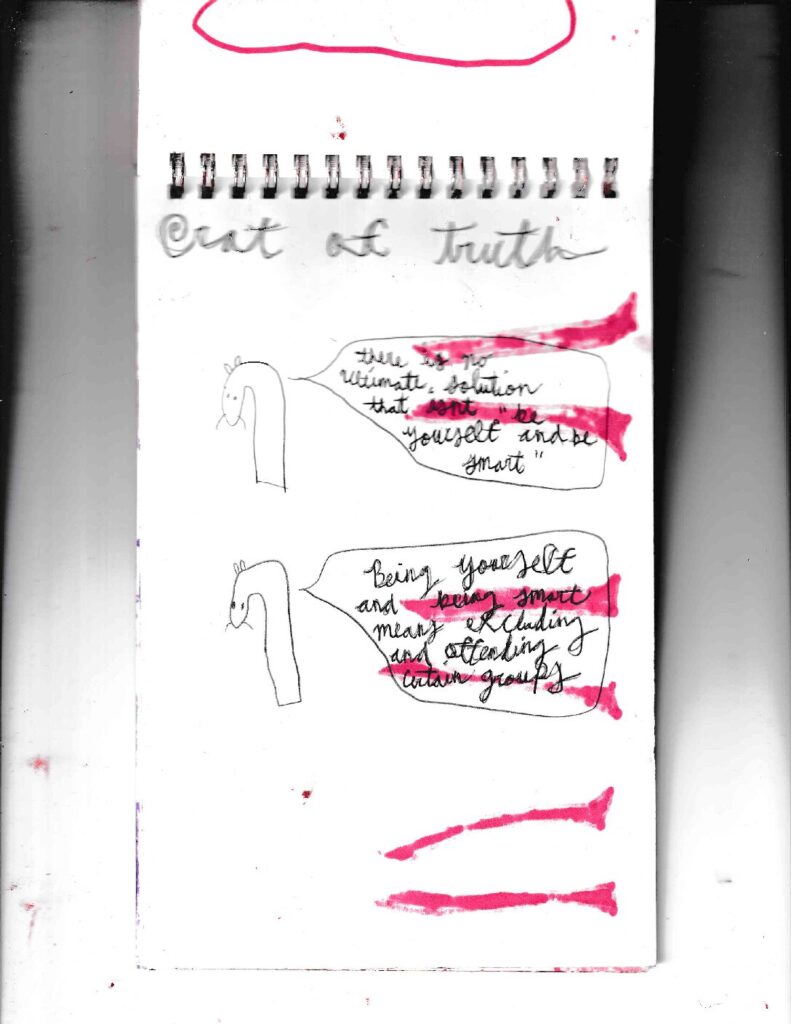 of truth
there is no
ultimate solution
that isnt "be
yourself and be
smart"
Being yourself
and being smart
means excluding
and offending
certain groups